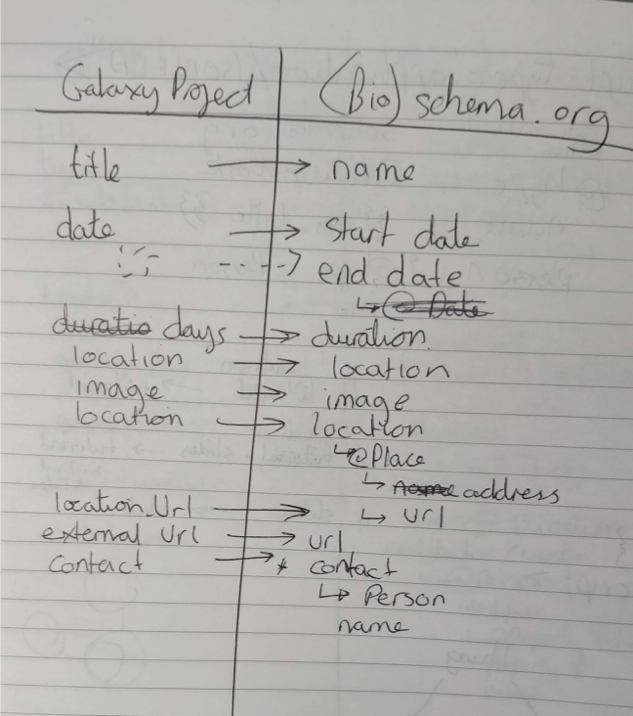 Galaxy Project (Bio) schema.org
title → name
date → start date
---> end date
↳ @ Date
duratio days → duration
location → location
image → image
location → location
↳ @Place
↳ name address
location_Url → ↳ url
external Url → url
Contact → * contact
↳ Person
name